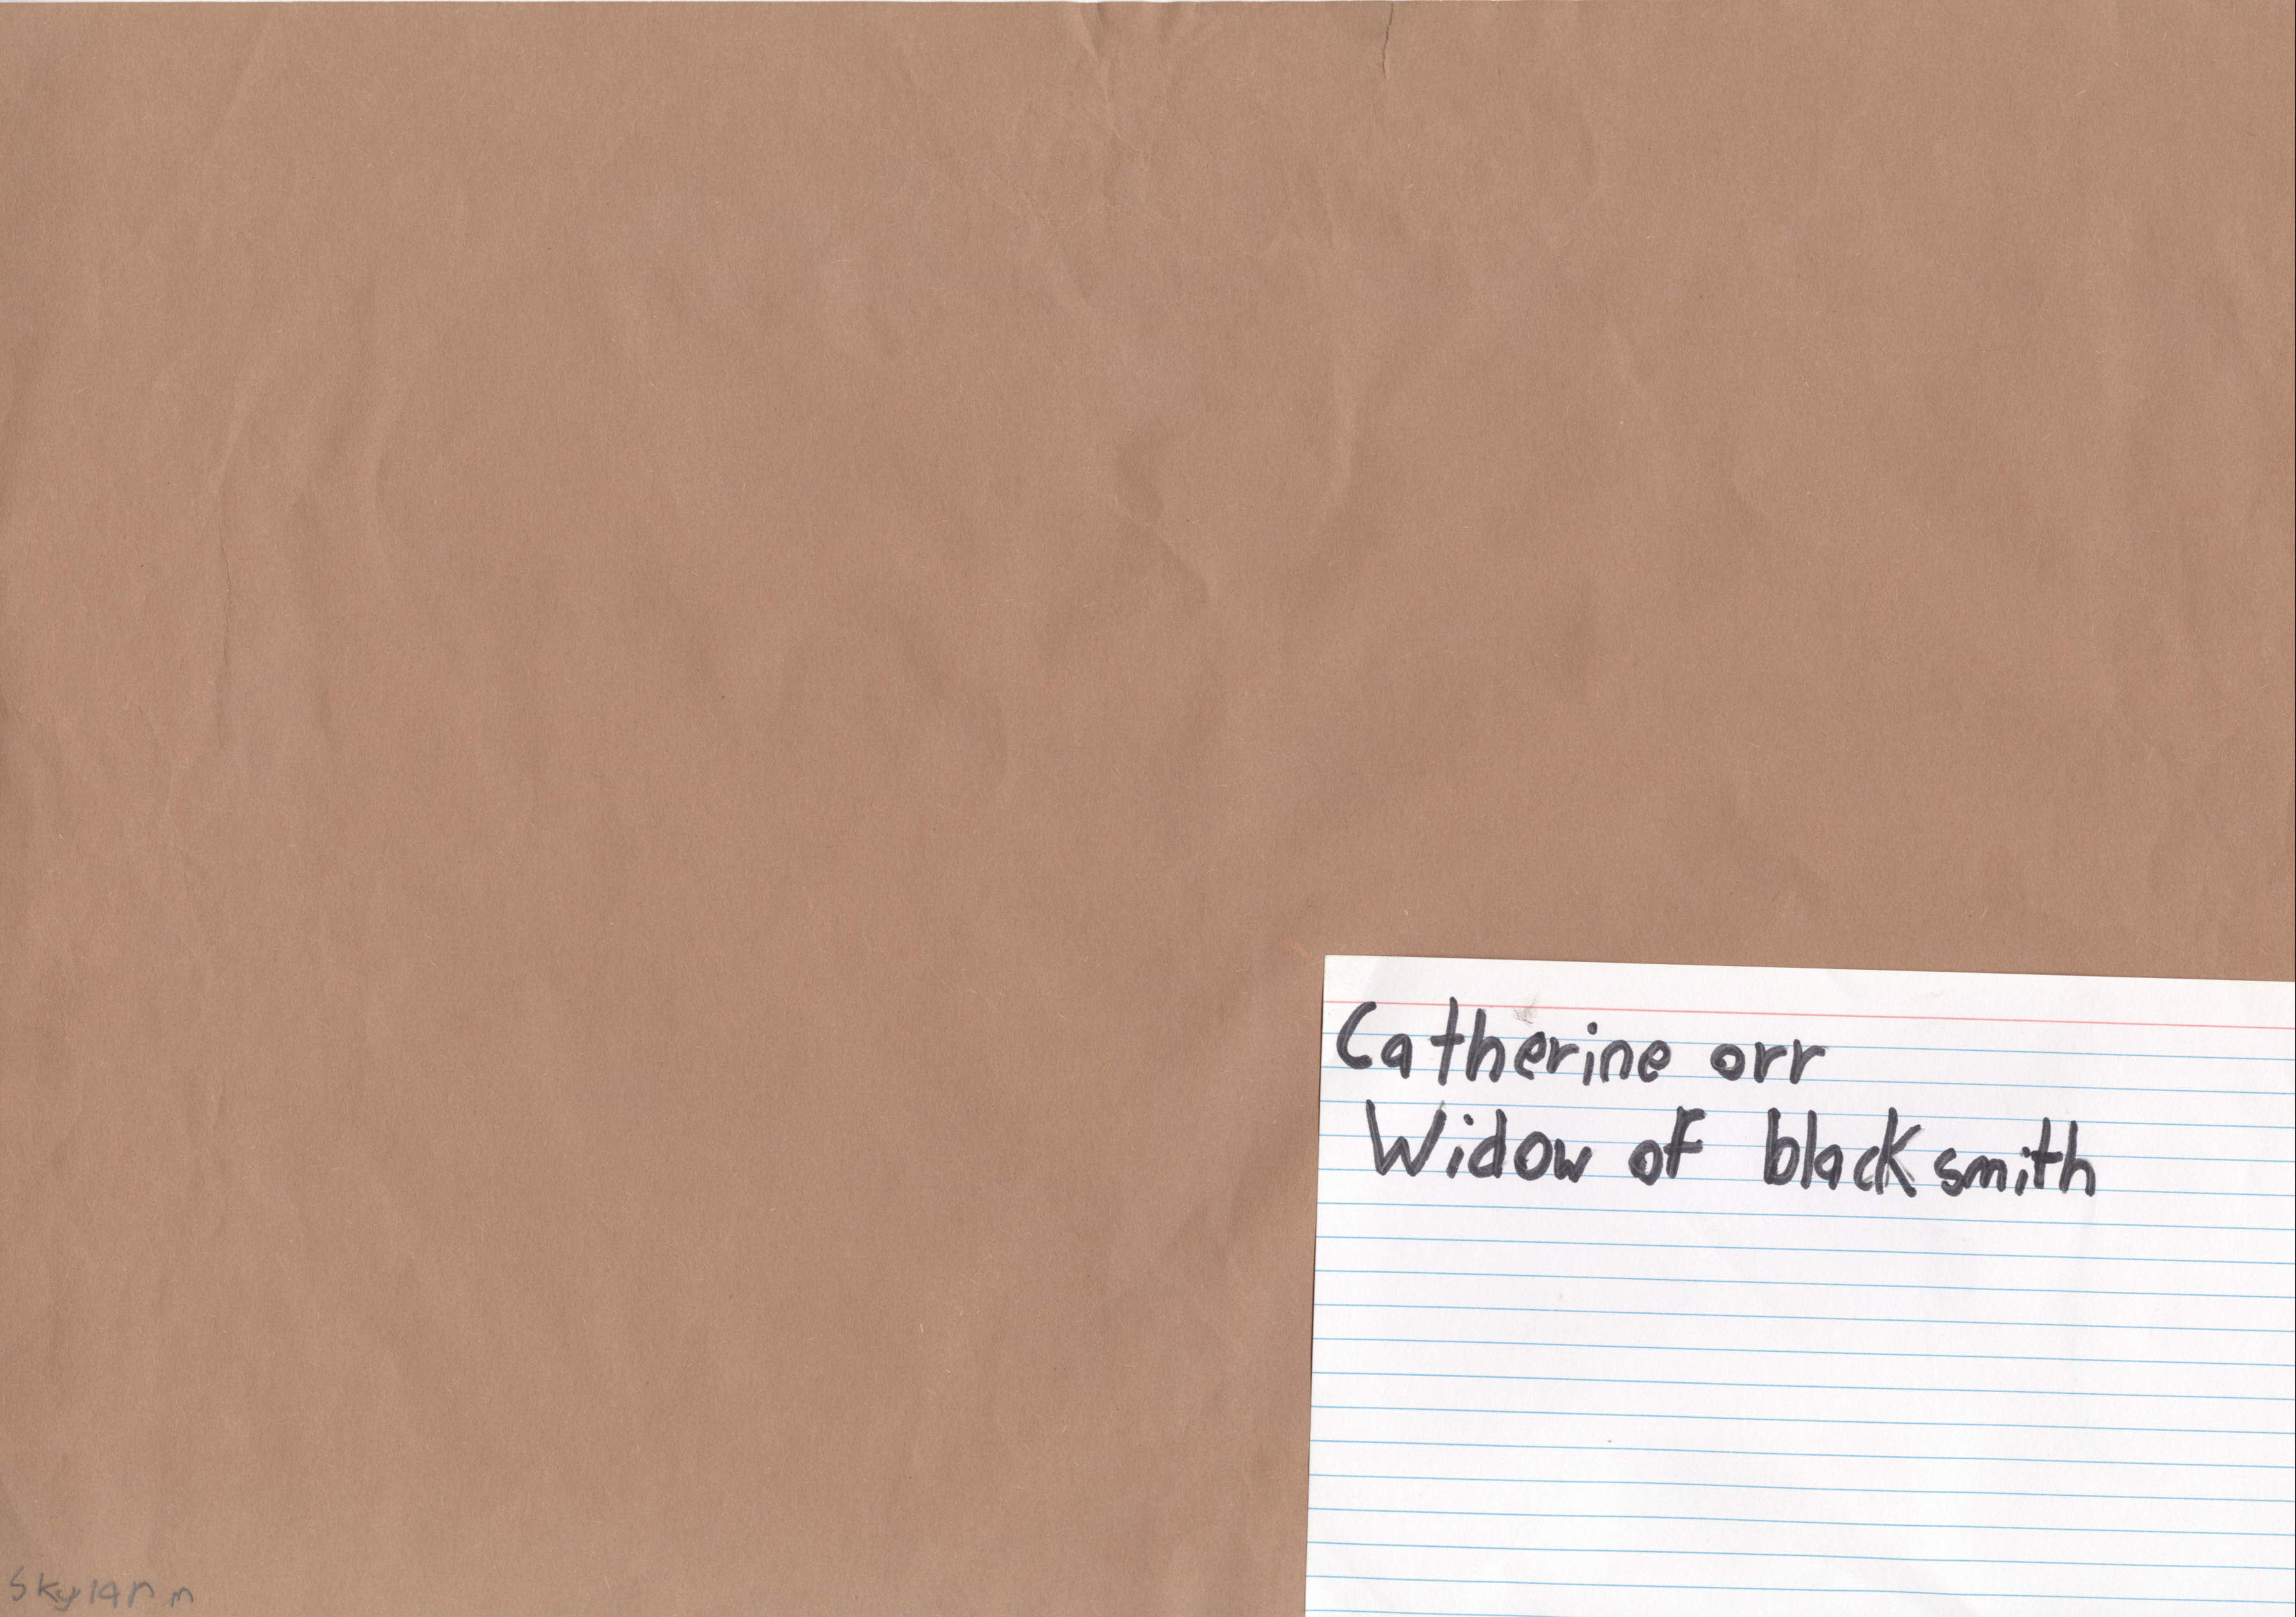 Catherine orr
Widow of blacksmith
Skylar m